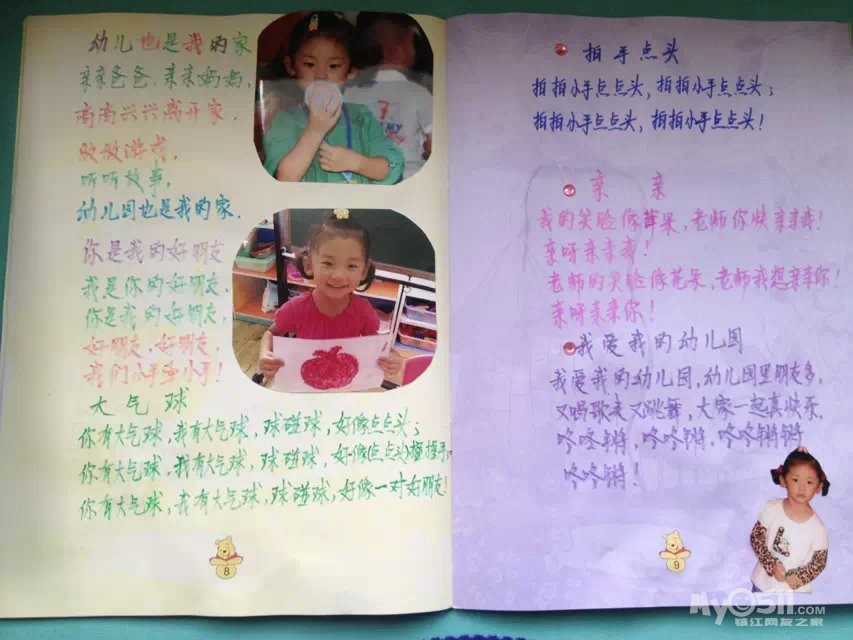 幼儿也是我的家
亲亲爸爸,亲亲妈妈,
高高兴兴离开家.
做做游戏,
听听故事,
幼儿园也是我的家.
你是我的好朋友
我是你的好朋友,
你是我的好朋友,
好朋友,好朋友,
我们小手拉小手!
大气球
你有大气球,我有大气球,球碰球,好像点点头;
你有大气球,我有大气球,球碰球,好像(点点头)握握手,
你有大气球,我有大气球,球碰球,好像一对好朋友!
8
拍手点头
拍拍小手点点头,拍拍小手点点头;
拍拍小手点点头,拍拍小手点点头!
亲亲
我的笑脸像苹果,老师你快亲亲我!
亲呀亲亲我!
老师的笑脸像花朵,老师我想亲亲你!
亲呀亲亲你!
我爱我的幼儿园
我爱我的幼儿园,幼儿园里朋友多,
又唱歌来又跳舞,大家一起真快乐.
咚咚锵,咚咚锵,咚咚锵锵
咚咚锵!
9
My0511.com
镇江网友之家